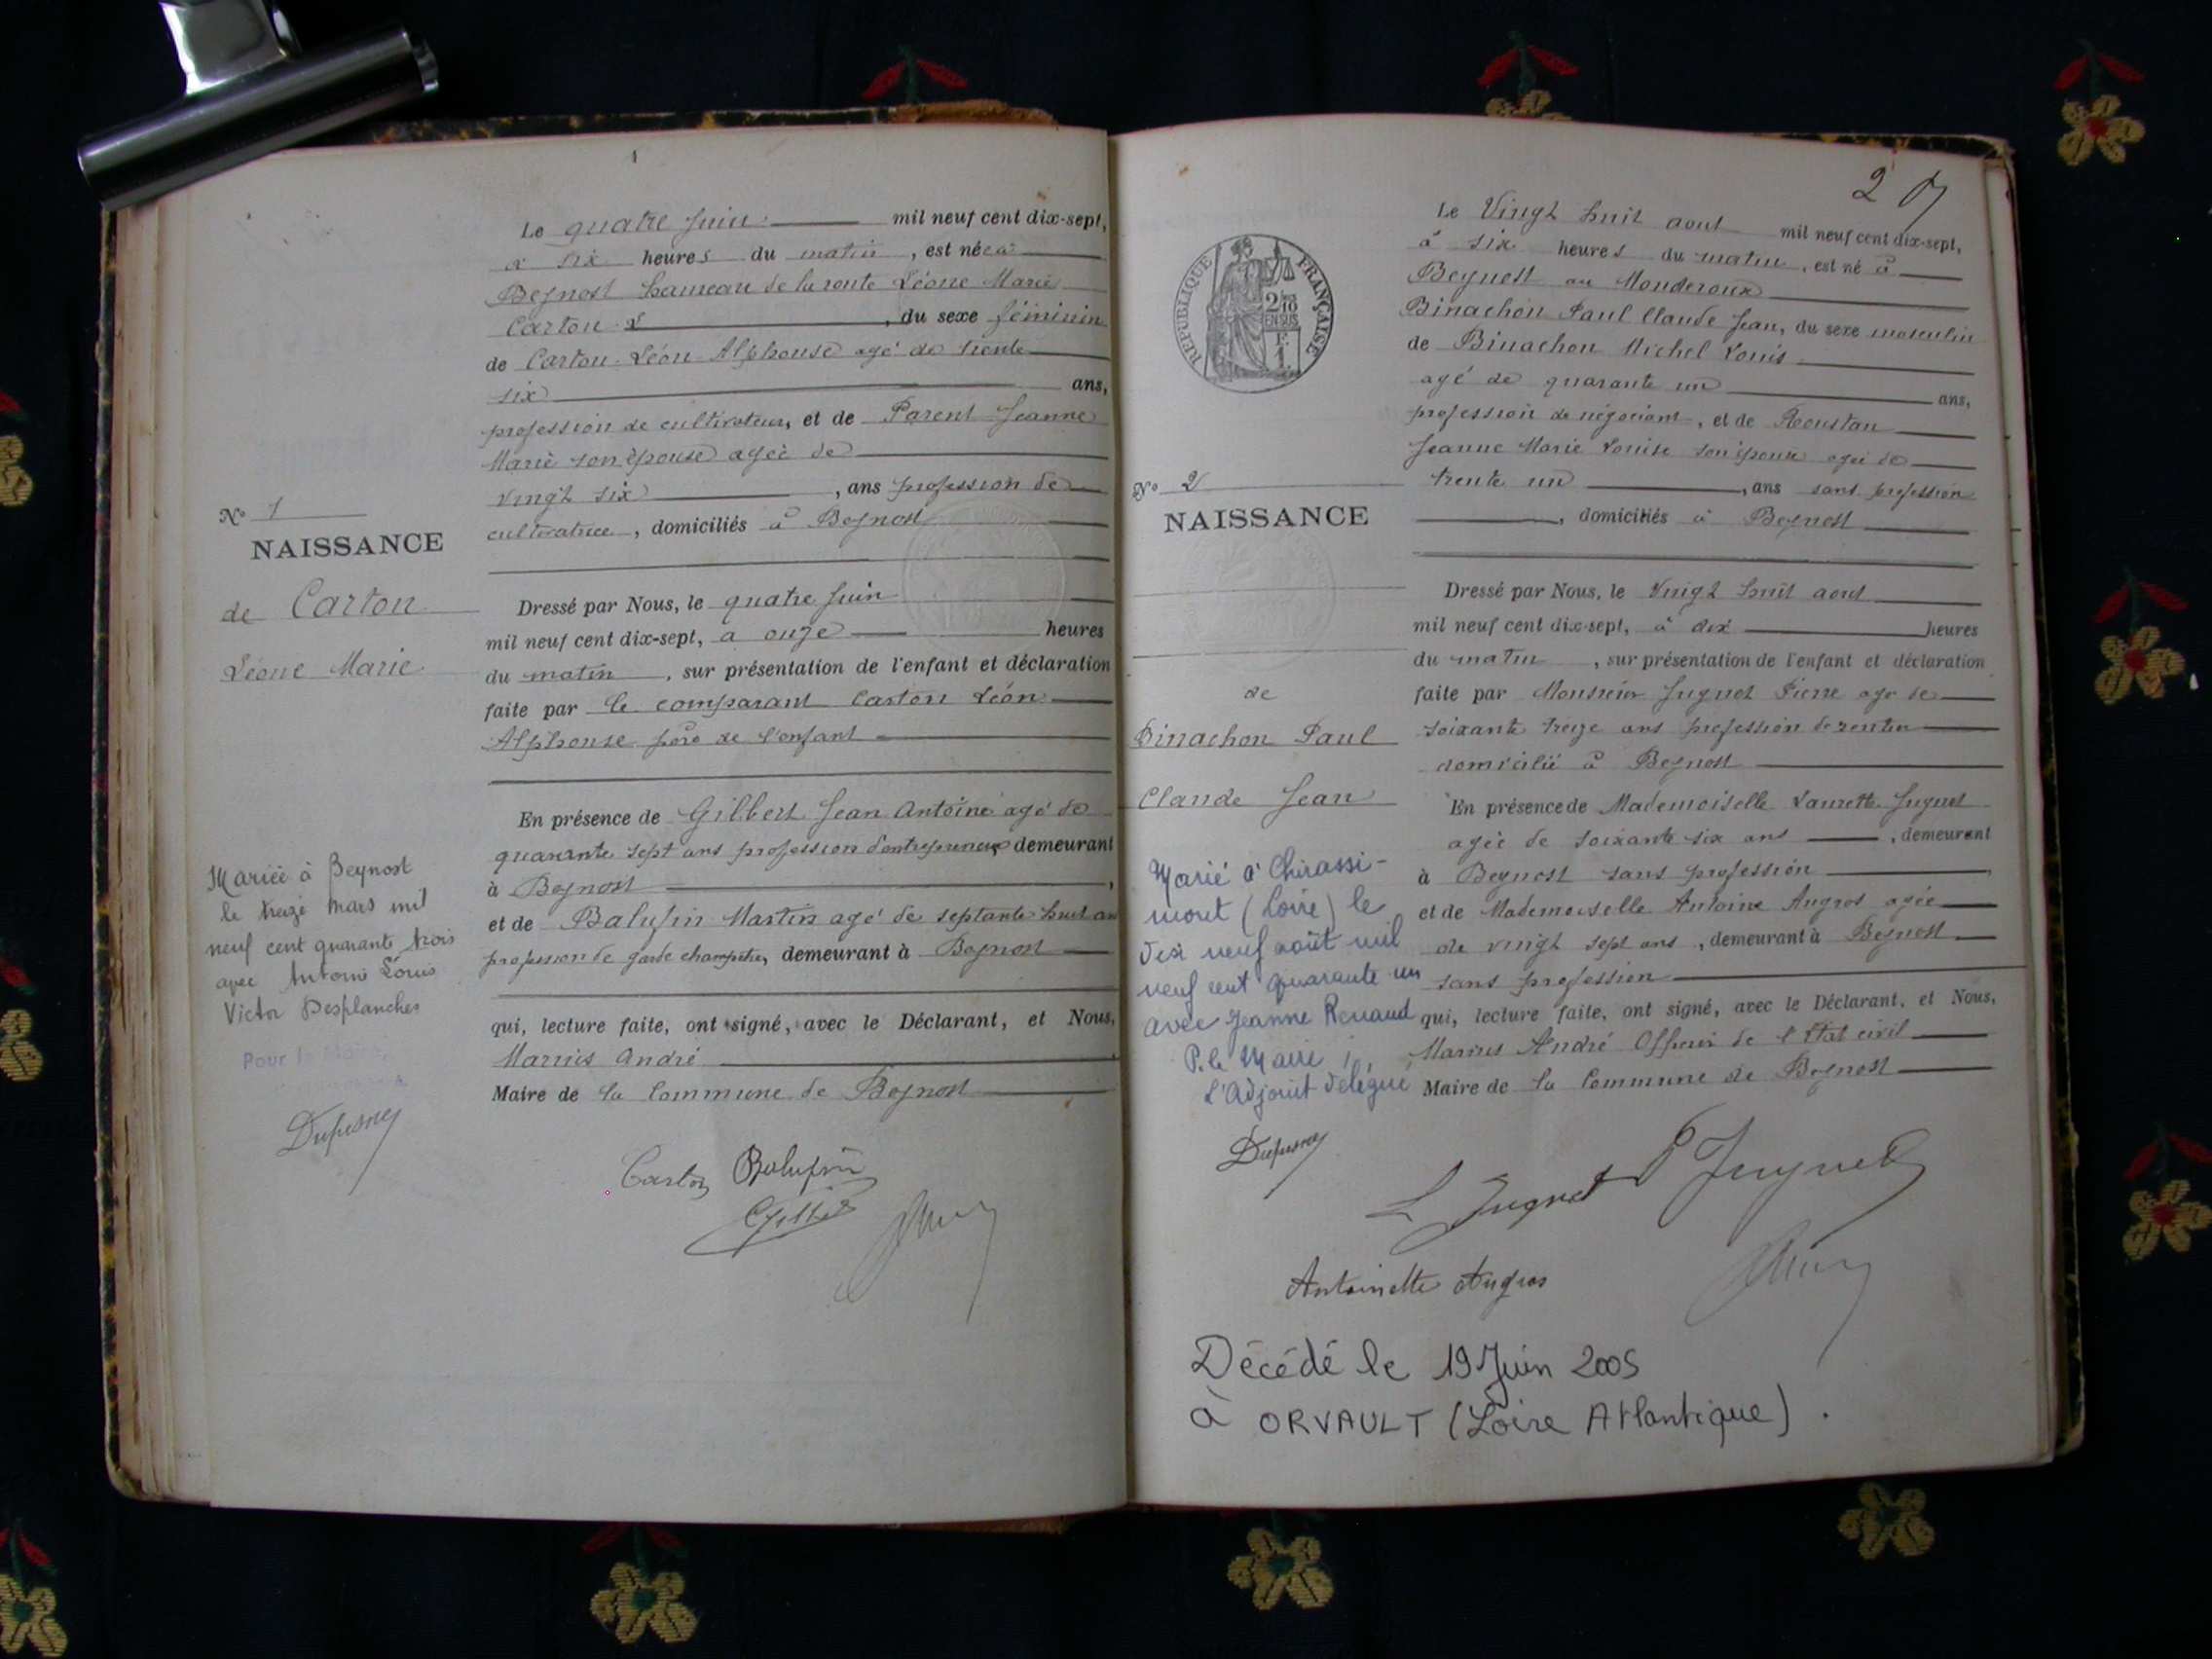 1
Le quatre Juin mil neuf cent dix-sept,
à six heures du matin, est née à
Beynost hameau de la route Léone Marie
Carton, du sexe féminin
de Carton Léon Alphonse agé de trente
six ans,
profession de cultivateur, et de Parent Jeanne
Marie son épouse agée de
vingt six, ans profession de
cultivatrice, domiciliés à Beynost
N° 1
NAISSANCE
de Carton
Léone Marie
Dressé par Nous, le quatre Juin
mil neuf cent dix-sept, à onze heures
du matin, sur présentation de l'enfant et déclaration
faite par le comparant Carton Léon
Alphonse père de l'enfant
En présence de Gilbert Jean Antoine agé de
quarante sept ans profession d'entrepreneur demeurant
à Beynost,
et de Balufin Martin agé de septante huit an
profession de garde champêtre, demeurant à Beynost
qui, lecture faite, ont signé, avec le Déclarant, et Nous,
Marius André
Maire de la Commune de Beynost
Mariée à Beynost
le treize mars mil
neuf cent quarante trois
avec Antoine Louis
Victor Desplanches
Pour le Maire,
Dufresney
Carton Balufin
Gilbert
2
Le Vingt huit aout mil neuf cent dix-sept,
à six heures du matin, est né à
Beynost au Monderoux
Binachon Paul Claude Jean, du sexe masculin
de Binachon Michel Louis
agé de quarante un ans,
profession de négociant, et de Roustan
Jeanne Marie Louise son épouse agée de
trente un, ans sans profession
, domiciliés à Beynost
RÉPUBLIQUE FRANÇAISE
2/10
EN SUS
1 F.
N° 2
NAISSANCE
de
Binachon Paul
Claude Jean
Dressé par Nous, le Vingt huit aout
mil neuf cent dix-sept, à dix heures
du matin, sur présentation de l'enfant et déclaration
faite par Monsieur Jugnet Pierre age de
soixante treize ans profession de rentier
domicilié à Beynost
En présence de Mademoiselle Laurette Jugnet
agée de soixante six ans, demeurant
à Beynost sans profession,
et de Mademoiselle Antoine Angros agée
de vingt sept ans, demeurant à Beynost
sans profession
qui, lecture faite, ont signé, avec le Déclarant, et Nous,
Marius André Officier de l'Etat civil
Maire de la Commune de Beynost
Marié à Chirassi-
mont (Loire) le
dix neuf août mil
neuf cent quarante un
avec Jeanne Renaud
P. le Maire,
L'Adjoint délégué
Dufresney
L Jugnet P Jugnet
Antoinette Angros
Décédé le 19 Juin 2005
à ORVAULT (Loire Atlantique).